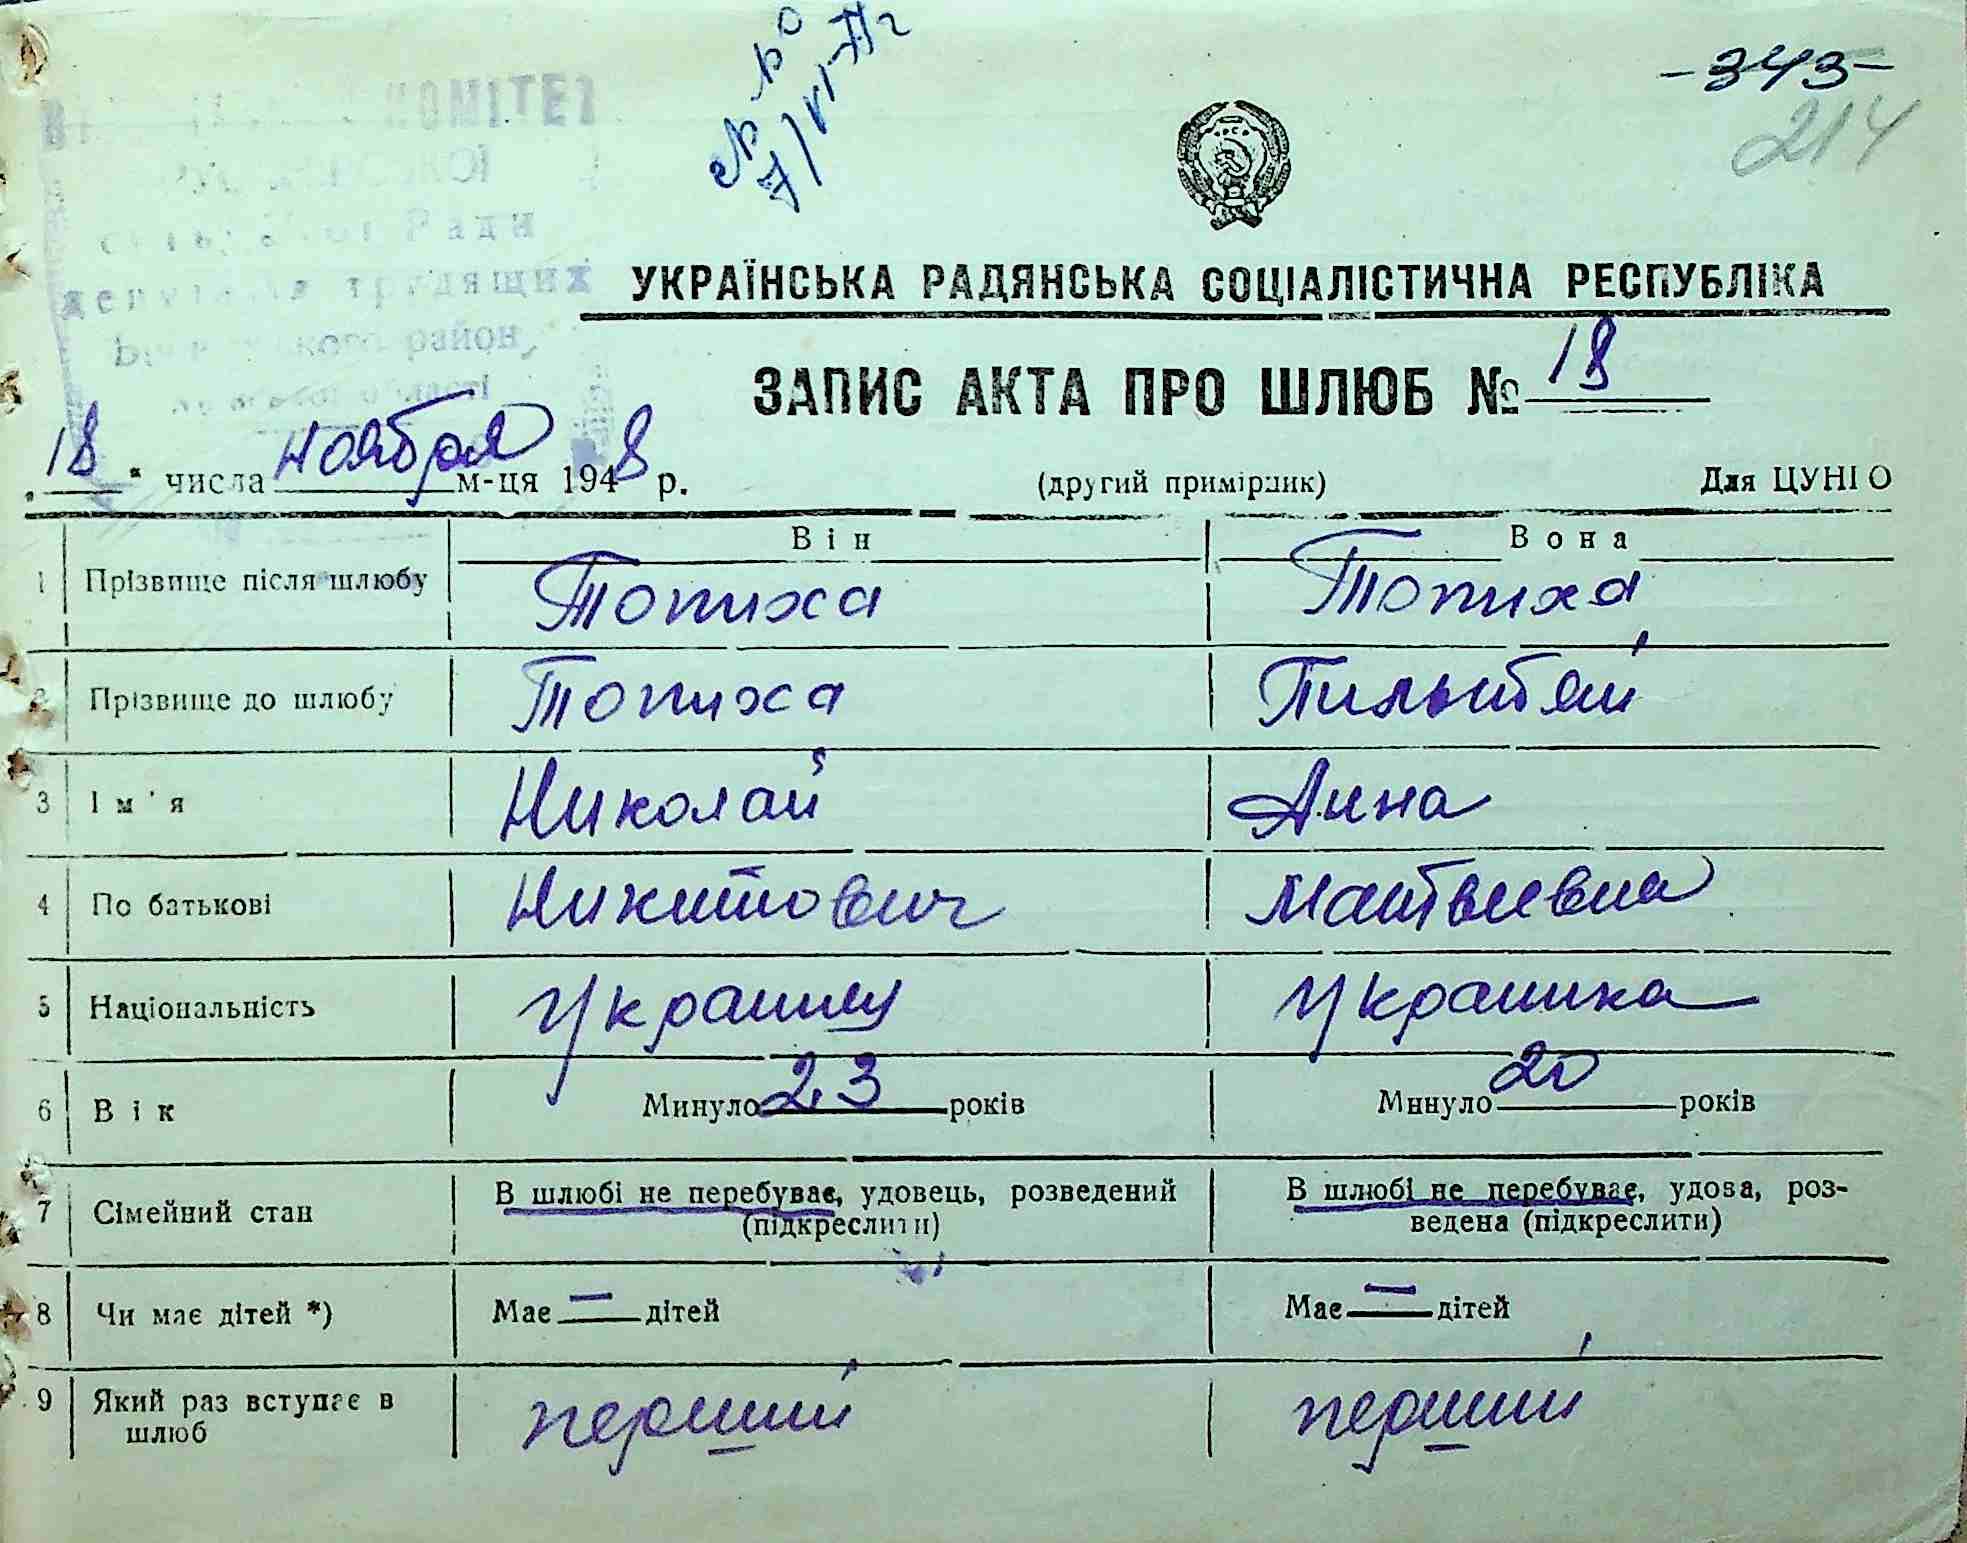 -343-
214
КОМІТЕТ
Ради
трудящих
район
області
УКРАЇНСЬКА РАДЯНСЬКА СОЦІАЛІСТИЧНА РЕСПУБЛІКА
ЗАПИС АКТА ПРО ШЛЮБ № 18
„18“ числа ноября м-ця 1948 р. (другий примірник) Для ЦУНГО
Він Вона
1 Прізвище після шлюбу Топиха Топиха
2 Прізвище до шлюбу Топиха Пильтяй
3 Ім'я Николай Анна
4 По батькові Никитович Матвеевна
5 Національність Украинец Украинка
6 Вік Минуло 23 років Минуло 20 років
7 Сімейний стан В шлюбі не перебуває, удовець, розведений (підкреслити) В шлюбі не перебуває, удова, роз-
ведена (підкреслити)
8 Чи має дітей *) Має — дітей Має — дітей
9 Який раз вступає в шлюб перший перший